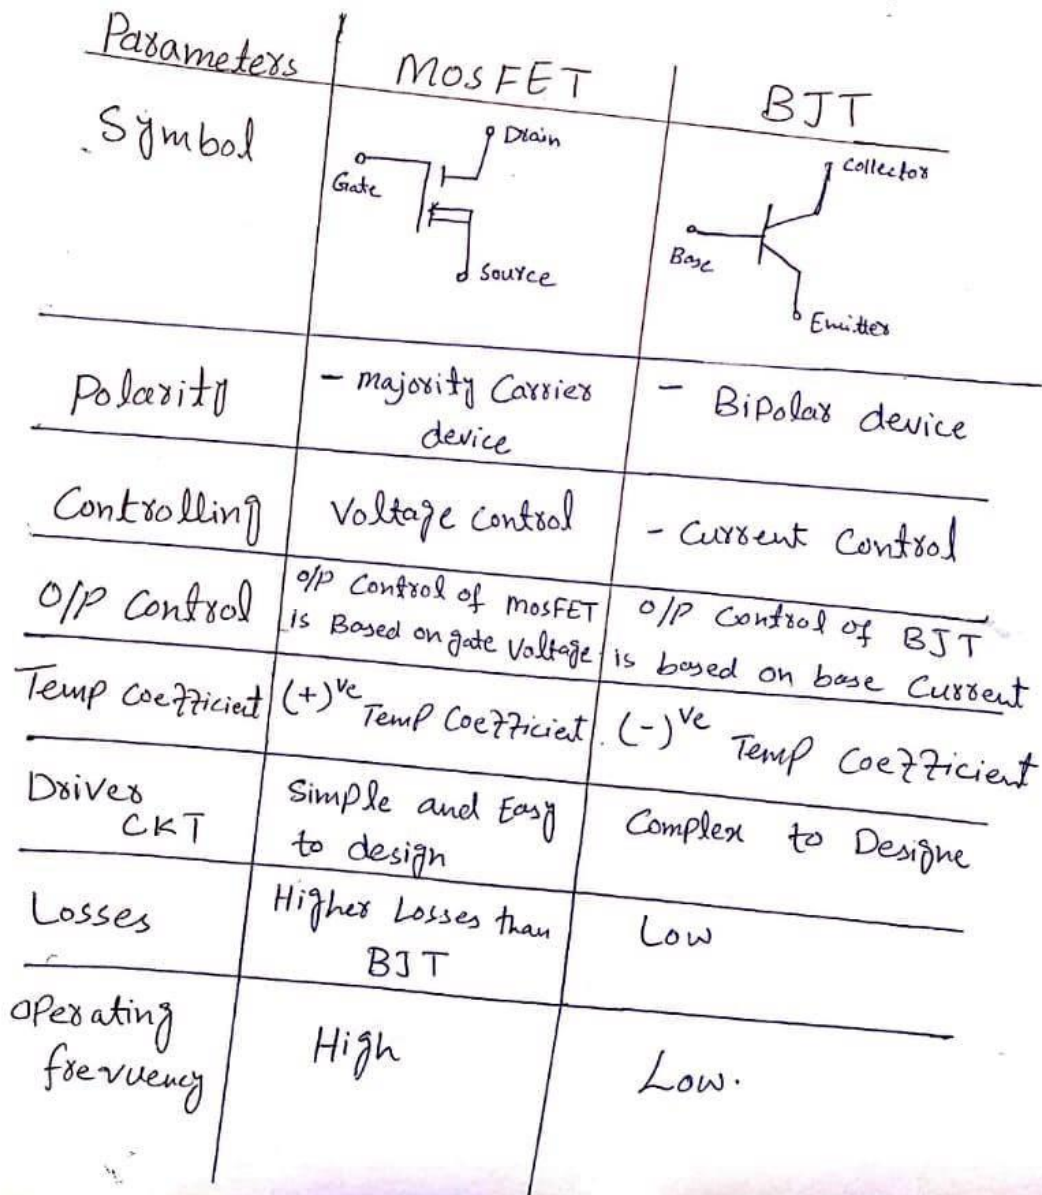 Parameters
MOSFET
BJT
Symbol
Drain
Gate
Source
Collector
Base
Emitter
Polarity
- Majority Carrier
device
- Bipolar device
Controlling
Voltage control
- Current Control
O/P Control
O/P Control of MOSFET
is Based on gate Voltage
O/P Control of BJT
is based on base Current
Temp Coefficient
(+)ve Temp Coefficient.
(-)ve Temp Coefficient
Driver
CKT
Simple and Easy
to design
Complex to Designe
Losses
Higher Losses than
BJT
Low
Operating
frequency
High
Low.